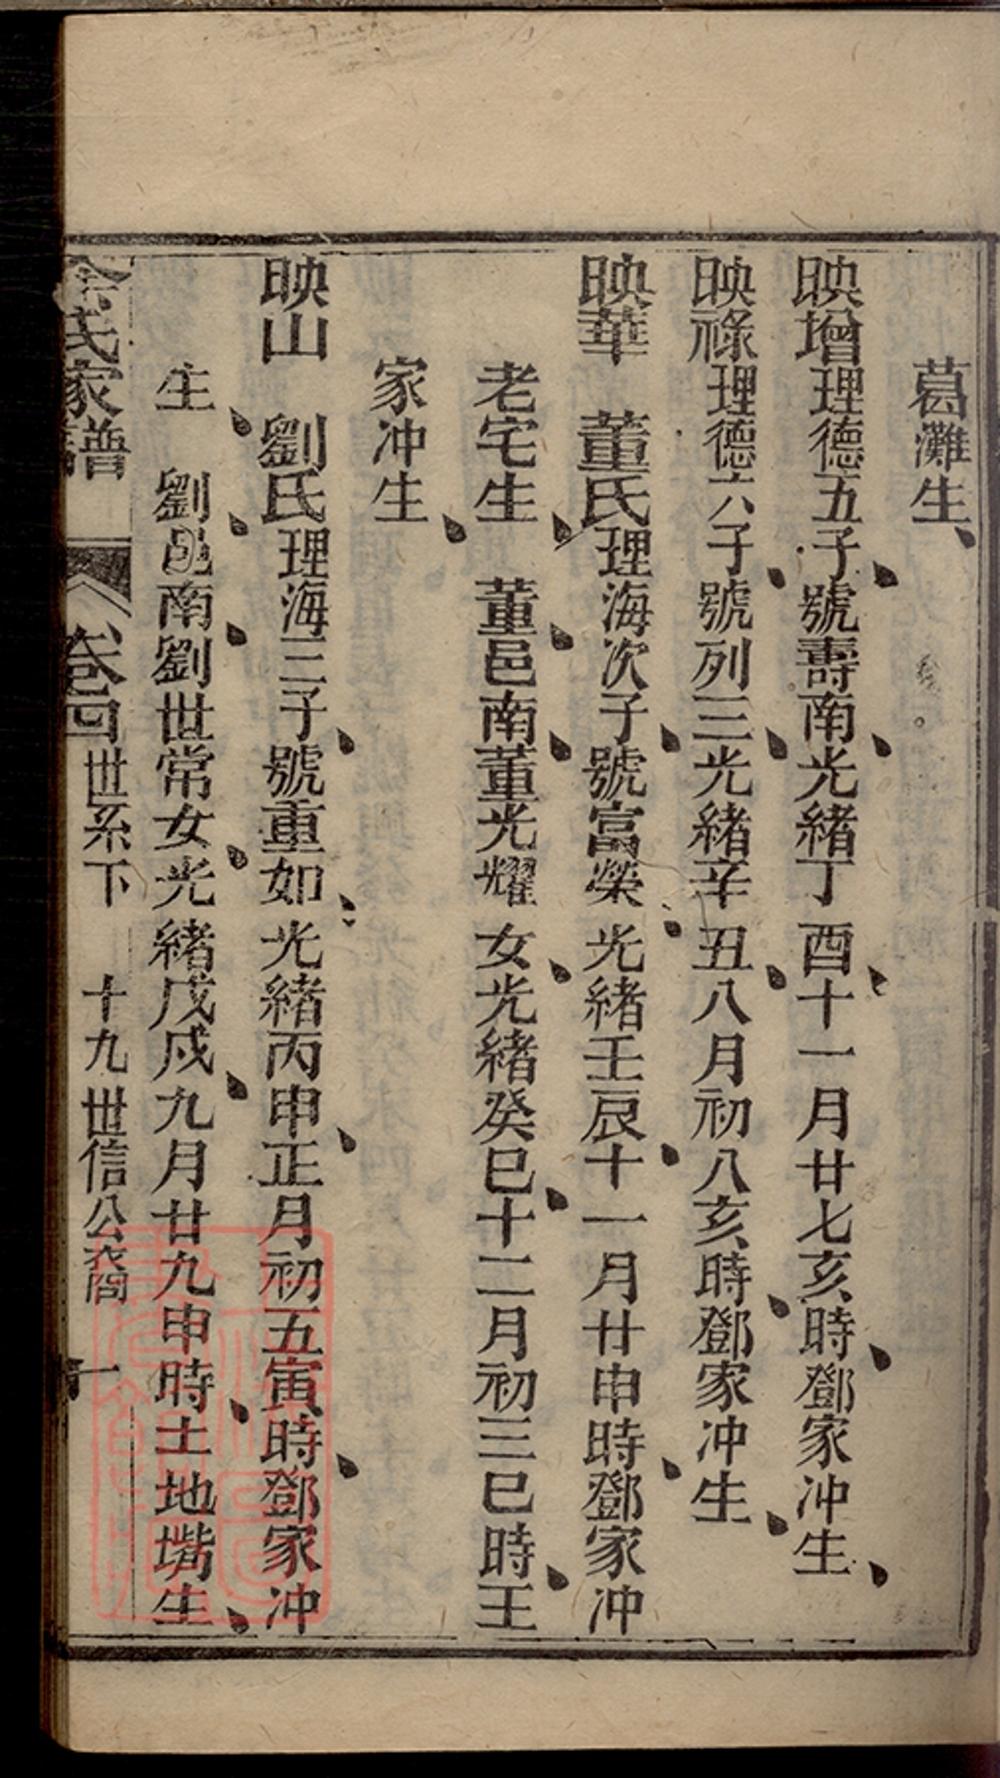 葛灘生
映增理德五子號壽南光緒丁酉十一月廿七亥時鄧家冲生
映祿理德六子號列三光緒辛丑八月初八亥時鄧家冲生
映華　董氏理海次子號富榮光緒壬辰十一月廿申時鄧家冲
老宅生　董邑南董光耀女光緒癸巳十二月初三巳時王
家冲生
映山　劉氏理海三子號重如光緒丙申正月初五寅時鄧家冲
生　劉邑南劉世常女光緒戊戌九月廿九申時土地嘴生
余氏家譜　卷四　世系下　十九世信公衣閤　一